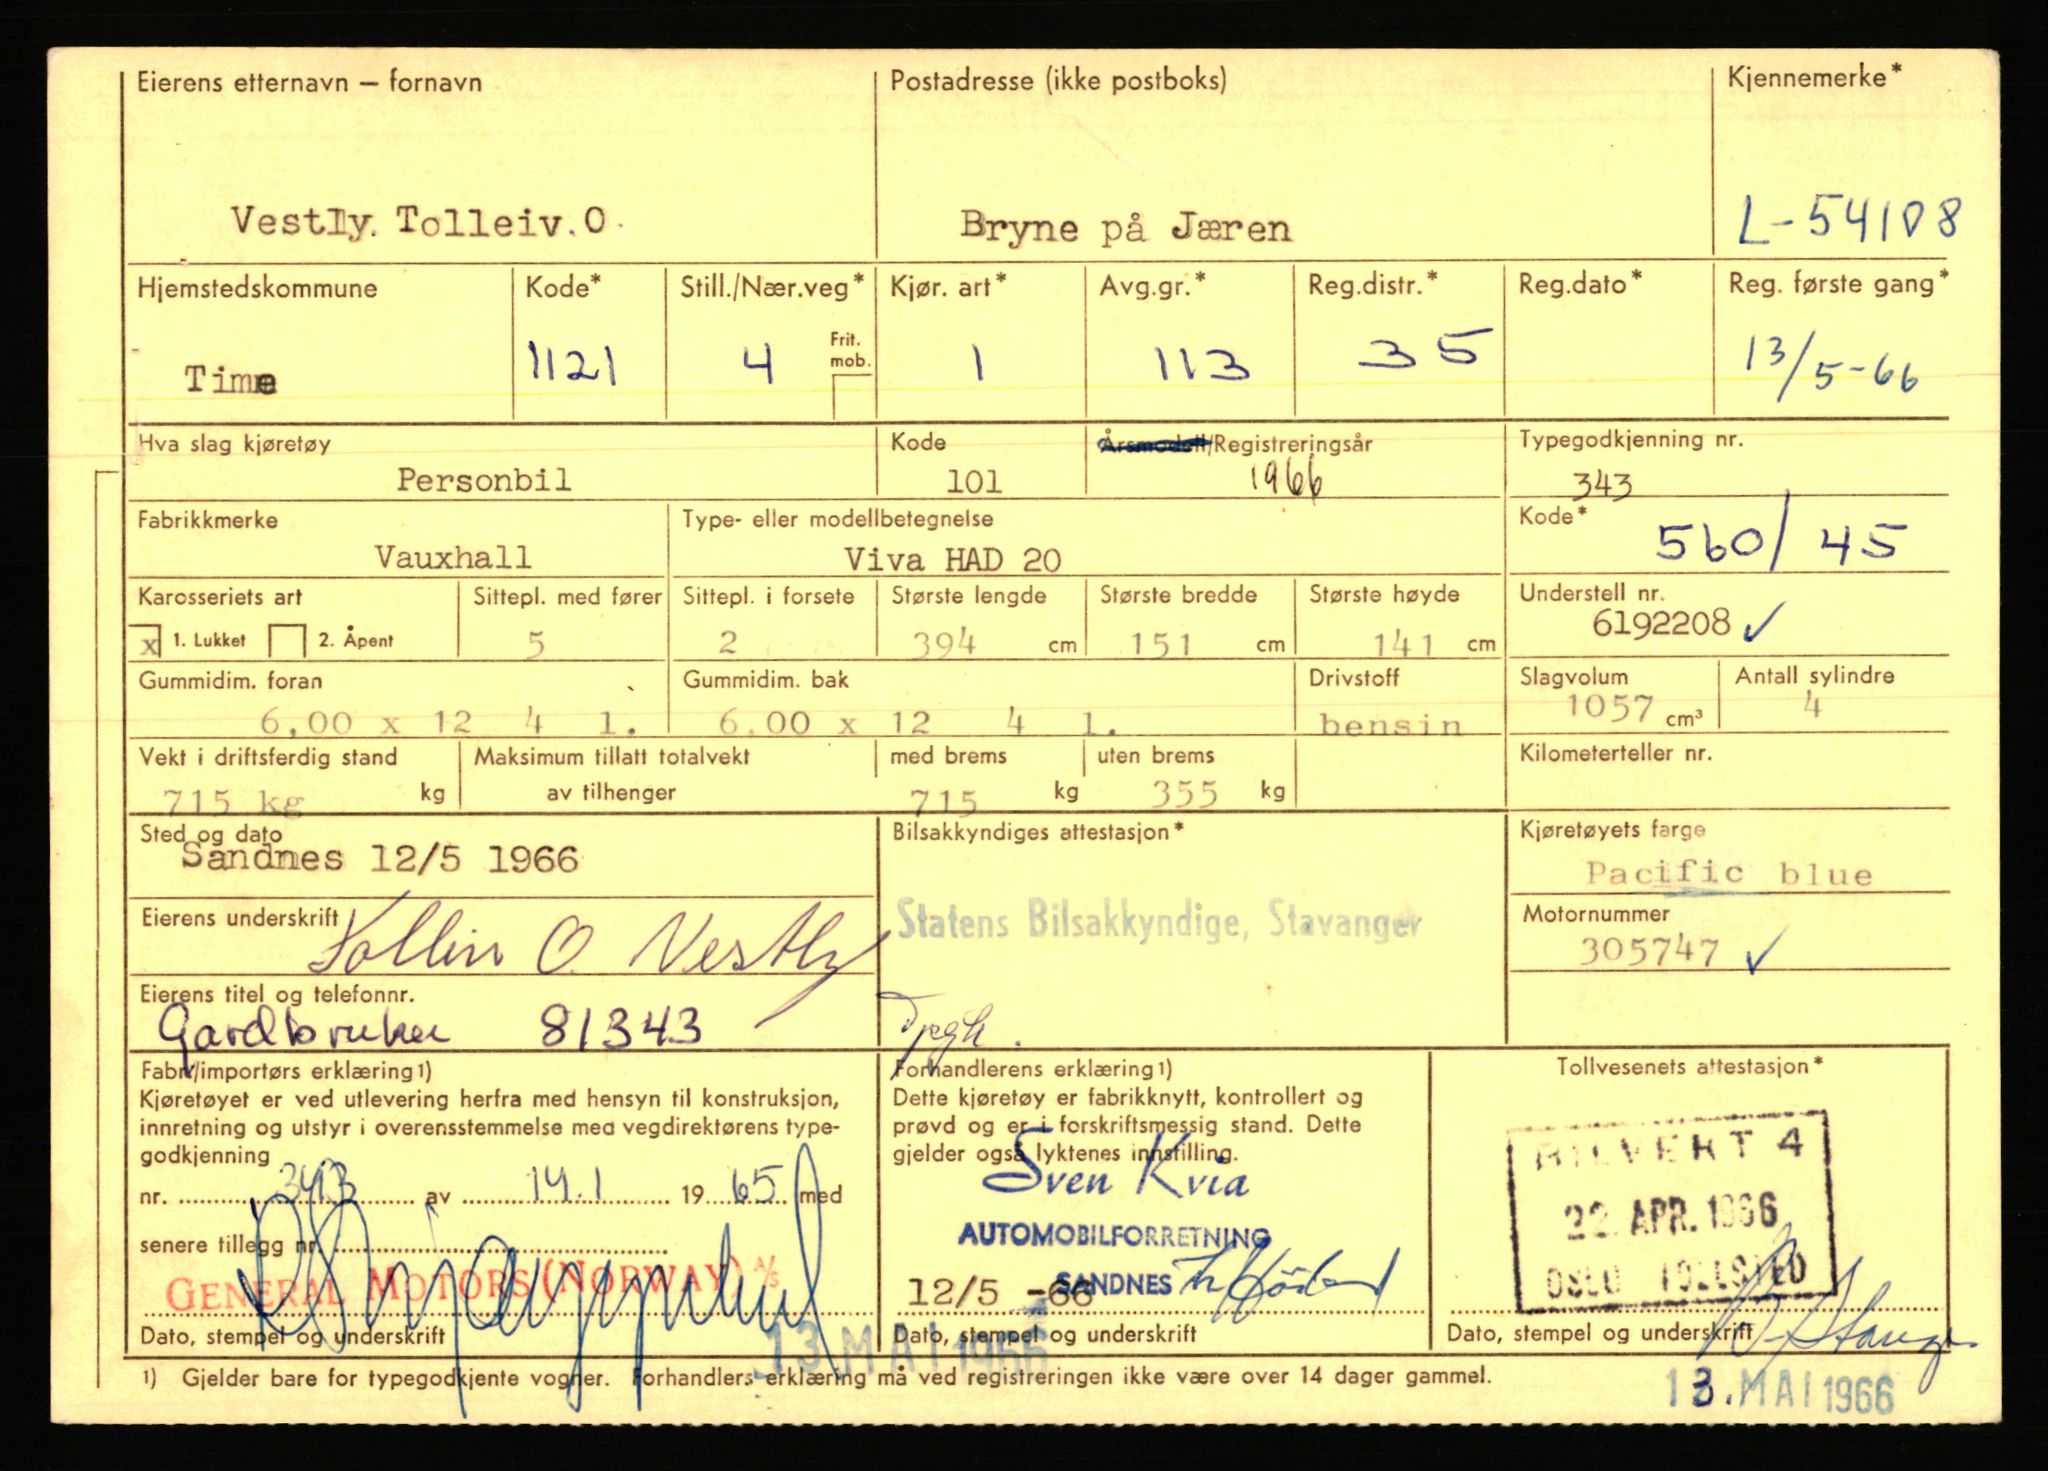 Eierens etternavn – fornavn Postadresse (ikke postboks) Kjennemerke*
Vestly. Tolleiv. O. Bryne på Jæren L-54108
Hjemstedskommune Kode* Still./Nær.veg* Kjør. art* Avg.gr.* Reg.distr.* Reg.dato* Reg. første gang*
Frit. mob.
Time 1121 4 1 113 35 13/5-66
Hva slag kjøretøy Kode Årsmodell/Registreringsår Typegodkjenning nr.
Personbil 101 1966 343
Fabrikkmerke Type- eller modellbetegnelse Kode*
Vauxhall Viva HAD 20 560/45
Karosseriets art Sittepl. med fører Sittepl. i forsete Største lengde Største bredde Største høyde Understell nr.
x 1. Lukket 2. Åpent 5 2 394 cm 151 cm 141 cm 6192208 ✓
Gummidim. foran Gummidim. bak Drivstoff Slagvolum Antall sylindre
6,00 x 12 4 l. 6,00 x 12 4 l. bensin 1057 cm³ 4
Vekt i driftsferdig stand Maksimum tillatt totalvekt med brems uten brems Kilometerteller nr.
715 kg kg av tilhenger 715 kg 355 kg
Sted og dato Bilsakkyndiges attestasjon* Kjøretøyets farge
Sandnes 12/5 1966 Pacific blue
Eierens underskrift Statens Bilsakkyndige, Stavanger Motornummer
O. Vestly 305747 ✓
Eierens titel og telefonnr.
Gardbruker 81343
Fabr./importørs erklæring 1) Forhandlerens erklæring 1) Tollvesenets attestasjon*
Kjøretøyet er ved utlevering herfra med hensyn til konstruksjon, Dette kjøretøy er fabrikknytt, kontrollert og
innretning og utstyr i overensstemmelse med vegdirektørens type- prøvd og er i forskriftsmessig stand. Dette
godkjenning gjelder også lyktenes innstilling.
BILVEKT 4
nr. 343 av 14.1 1965 med Sven Kvia
22. APR. 1966
senere tillegg nr. AUTOMOBILFORRETNING
GENERAL MOTORS (NORWAY) A/S 12/5 -66 SANDNES OSLO TOLLSTED
Dato, stempel og underskrift Dato, stempel og underskrift Dato, stempel og underskrift
13 MAI 1966
1) Gjelder bare for typegodkjente vogner. Forhandlers erklæring må ved registreringen ikke være over 14 dager gammel.
13. MAI 1966